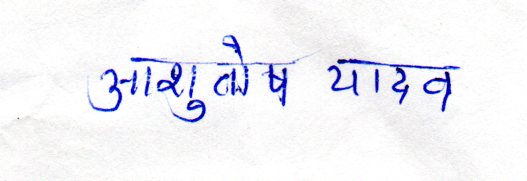 आशुतोष यादव